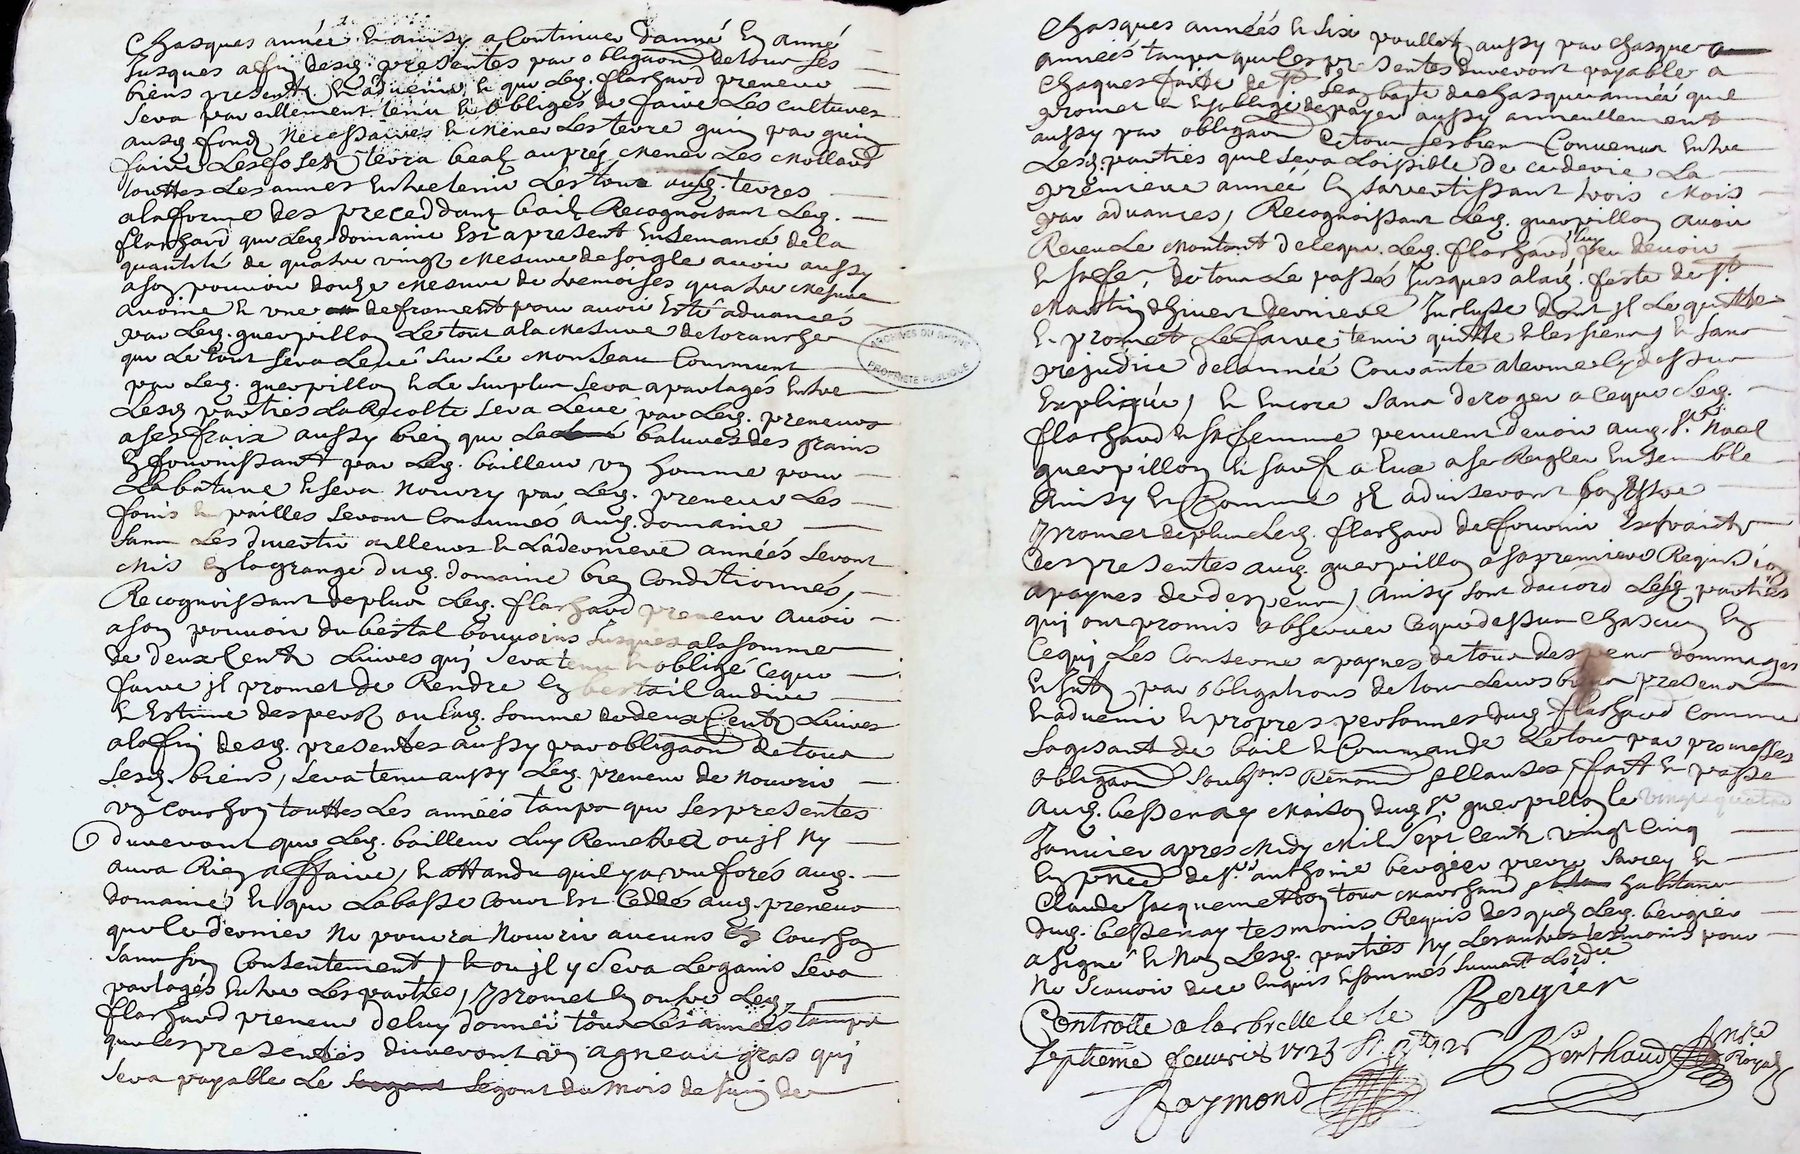 Chasques année & ainsy a Continuer d'anné En anné
Jusques a fin desd. presentes par obligaon de tour ses
biens presents & aduenir, & que Led. flachard preneur
sera pareillement tenu & obligés de faire Les cultures
ausd. fondz Necessaires & Mener Les terre
faire Les
touttes Les annes Entretenir Les tour ausd. terres
a la forme des preceddant bail Recognoisant Led.
flachard que Led. domaine Est apresent Ensemancé de la
quantité de quatre vingt Mesure de soigle avoir aussy
a son pouvoir douze Mesure de tremoises quatre Mesure
avoine & une de froment pour avoir Esté aduancés
par Led. guerpillon Le tout a la Mesure de
que Le tout sera Leué sur Le Monseau Commun
par Led. guerpillon & Le surplus sera apartagés Entre
Lesd. parties La Recolte sera Leué par Led. preneur
a ses fraix aussy bien que Le batures des grains
En fournissant par Led. bailleur un homme pour
La bature & sera Nourry par Led. preneur Les
foins & pailles seront Consumés aud. domaine
sans Les diuertir ailleurs & La derniere années seront
Mis En la grange dud. domaine bien Conditionnés,
Recognoissant de plus Led. flachard preneur avoir
a son pouvoir du bestal bouuoins Jusques a la somme
de deux Cents Liures quj sera tenu & obligé Ceque
faire jl promet de Rendre En bestail au dire
& Estime despers ou Lad. somme de deux Cents Liures
a la fin desd. presentes aussy par obligaon de tour
sesd. biens, sera tenu aussy Led. preneur de Nourir
un courhon touttes Les années tampz que Les presentes
dureront que Led. bailleur Luy Remettra ou jl Ny
aura Rien affaire, & attandu quil y a une forés aud.
domaine & que La basse Cour Est Ceddé aud. preneur
que Le dernier Ne pourra Nourir aucuns Courhon
sans son Consentement, & ou jl y sera Legains sera
partagés Entre Les parties, Promet En outre Led.
flachard preneur de luy donner tour Les années tampz
que Les presentes dureront un agneau gras quj
sera payable Le segont du Mois de Juin de
Chasques années & six poullets aussy par Chasque
années tampz que Les presentes dureront payable a
Chaques faite de St. Jean bapte de Chasque année quil
promet & s'oblige de payer aussy annuellement
aussy par obligaon & tour ses bien Convenu Entre
Lesd. parties quil sera Loissible de ce derie La
premiere année En s'avertissant trois Mois
par aduances, Recognoissant Led. guerpillon avoir
Receu Le Montant de ceque Led. flachard luy peu devoir
& sa fe, de tout Le passés Jusques a lad. feste de St
Martin d'hiuert derniere Incluse dont jl Le quitte
& promet Le faire tenir quitte & Les siens, & sans
prejudice de L'année Courante a terme Cy dessus
Expliqué, & Encore sans deroger a Ceque Led.
flachard & sa femme peuuent devoir aud. Sr. Noel
guerpillon & sauf a Eux a se Regler Ensemble
Ainsy & Comme jl aduiseront
Promet de plus Led. flachard de fournir Extraict
des presentes aud. guerpillon a sa premiere Requisi
a paynes de despens, Ainsy sont d'accord Lesd. parties
quj ont promis obseruer Ceque dessus Chascun En
Cequj Les Conserne a paynes de tour despens dommages
& Jnts par obligations de tour Leurs biens presens
& aduenir & propres personnes dud. flachard Comme
sagisant de bail & Commande Le tour par promesses
obligaon soubons Renonon & Clauses, fait & passé
aud. bessenay Maison dud. Sr. guerpillon le vingt quatre
Januier apres Midy Mil sept Cents vingt Cinq
En pnce de Sr. anthoine bergier
Claude Jacquemetton tour Marchand habitans
dud. bessenay tesmoins Requis desquels Led. bergier
a signé & Non Lesd. parties Ny Les autres tesmoins pour
Ne scauoir de ce Enquis & sommés suiuant L'ordre
Bergier
Controllé a larbrelle le
septieme feurier 1725
Berthaud Nre Royal
Raymond
ARCHIVES DU RHÔNE
PROPRIÉTÉ PUBLIQUE